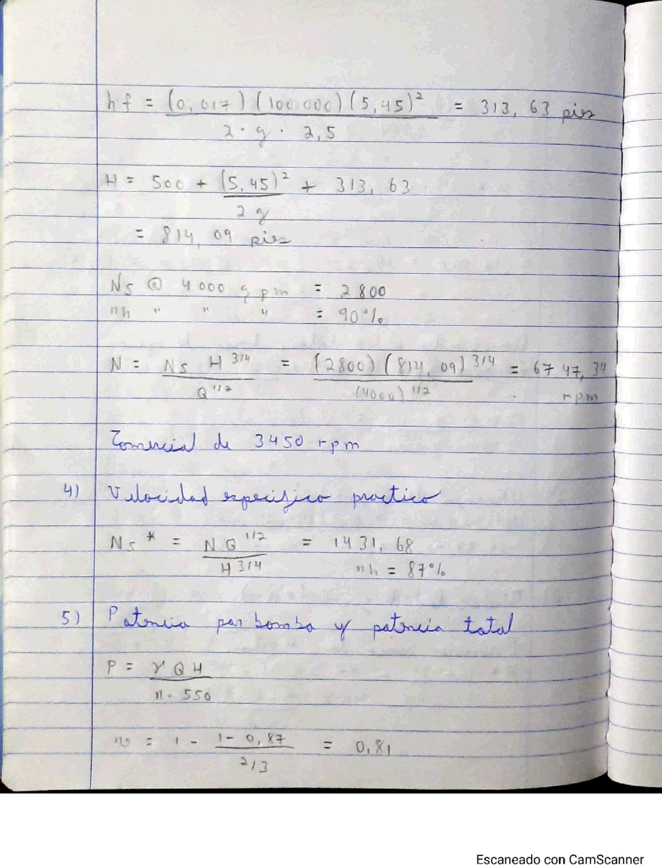 hf = (0,017) (100 000) (5,45)² / 2 · g · 2,5 = 313, 63 pies
H = 500 + (5,45)² / 2g + 313, 63
= 814, 09 pies
Ns @ 4000 gpm = 2800
nh " " " = 90%
N = Ns H 3/4 / Q 1/2 = (2800) (814, 09) 3/4 / (4000) 1/2 = 6747,34 rpm
Comercial de 3450 rpm
4) Velocidad especifico practico
Ns * = N Q 1/2 / H 3/4 = 1431, 68
nh = 87%
5) Potencia por bomba y potencia total
P = γ Q H / n · 550
= 1 - 1 - 0,87 / 2/3 = 0,81
Escaneado con CamScanner